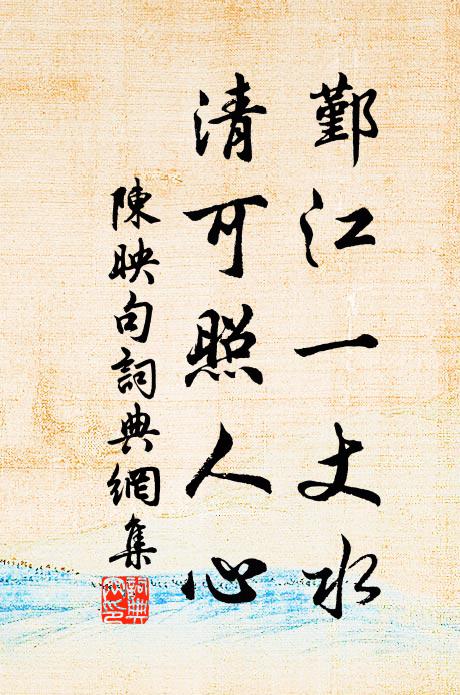 鄞江一丈水
清可照人心
陳映句詞典網集